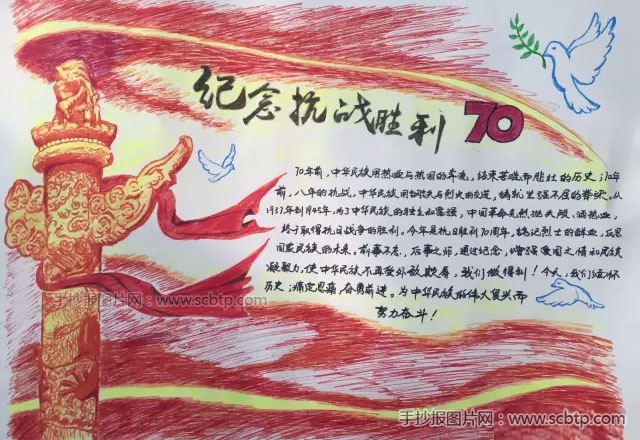 纪念抗战胜利 70
70年前，中华民族用热血与顽固的奔流，结束苦难而悲壮的历史；70年
前，八年的抗战，中华民族用钢铁与烈火的交迸，铸就坚强不屈的脊梁。从
1937年到1945年，为了中华民族的独立和富强，中国革命先烈抛头颅，洒热血，
终于取得抗日战争的胜利。今年是抗日胜利70周年，铭记烈士的鲜血，反思
国家民族的未来，前事不忘，后事之师，通过纪念，增强爱国之情和民族
凝聚力，使中华民族不再受外敌欺辱，我们做得到！今天，我们缅怀
历史；痛定思痛，奋勇前进。为中华民族的伟大复兴而
努力奋斗！
手抄报图片网：www.scbtp.com
手抄报图片网：www.scbtp.com